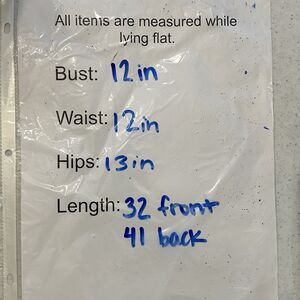 All items are measured while
lying flat.
Bust: 12in
Waist: 12in
Hips: 13in
Length: 32 front
41 back